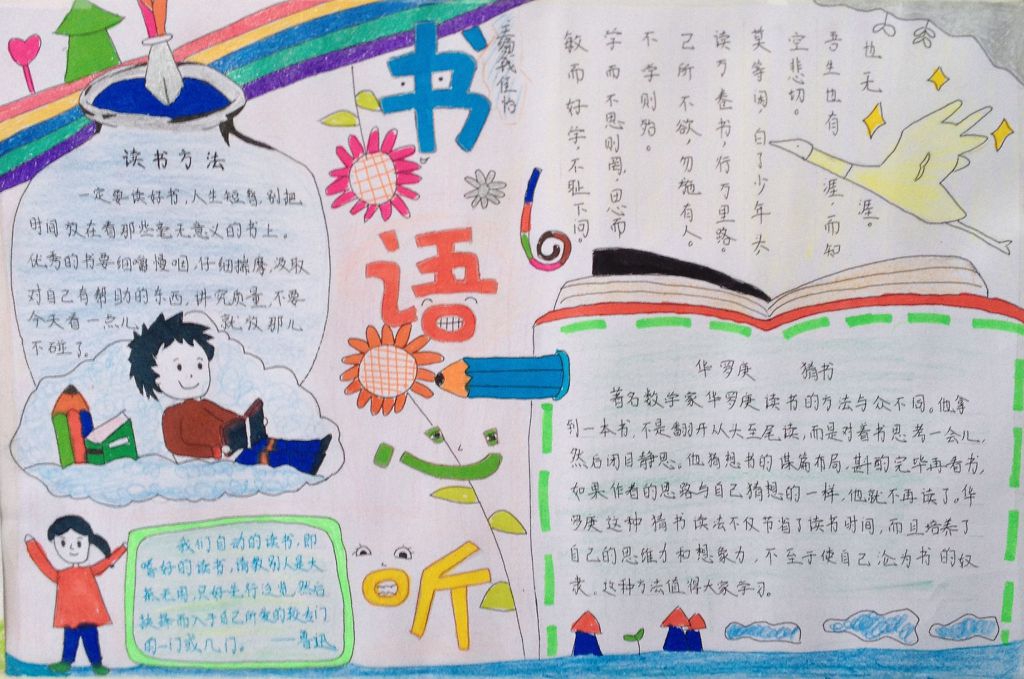 书语心听
读书方法
一定要读好书,人生短暂,别把
时间放在看那些毫无意义的书上。
优秀的书要细嚼慢咽,仔细揣摩,汲取
对自己有帮助的东西,讲究质量,不要
今天看一点儿,就放那儿
不碰了。
我们自动的读书,即
嗜好的读书,请教别人是大
抵无用,只好先行泛览,然后
抉择而入于自己所爱的较专门
的一门或几门。——鲁迅
吾生也有涯,而知
也无涯。
莫等闲,白了少年头,
空悲切。
读万卷书,行万里路。
己所不欲,勿施有人。
学而不思则罔,思而
不学则殆。
敏而好学,不耻下问。
华罗庚 猜书
著名数学家华罗庚读书的方法与众不同。他拿
到一本书,不是翻开从头至尾读,而是对着书思考一会儿,
然后闭目静思。他猜想书的谋篇布局,斟酌完毕再看书,
如果作者的思路与自己猜想的一样,他就不再读了。华
罗庚这种猜书读法不仅节省了读书时间,而且培养了
自己的思维力和想象力,不至于使自己沦为书的奴
隶。这种方法值得大家学习。